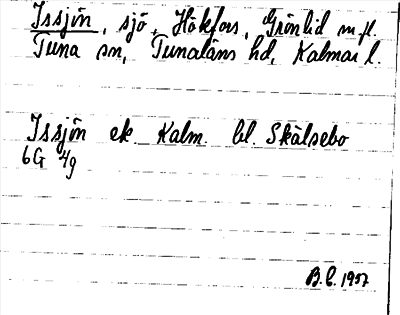 Issjön, sjö, Hökfors, Grönlid m.fl.
Tuna sn, Tunaläns hd, Kalmar l.
Issjön ek. Kalm. bl. Skälsebo
6G 4g
B.C. 1957